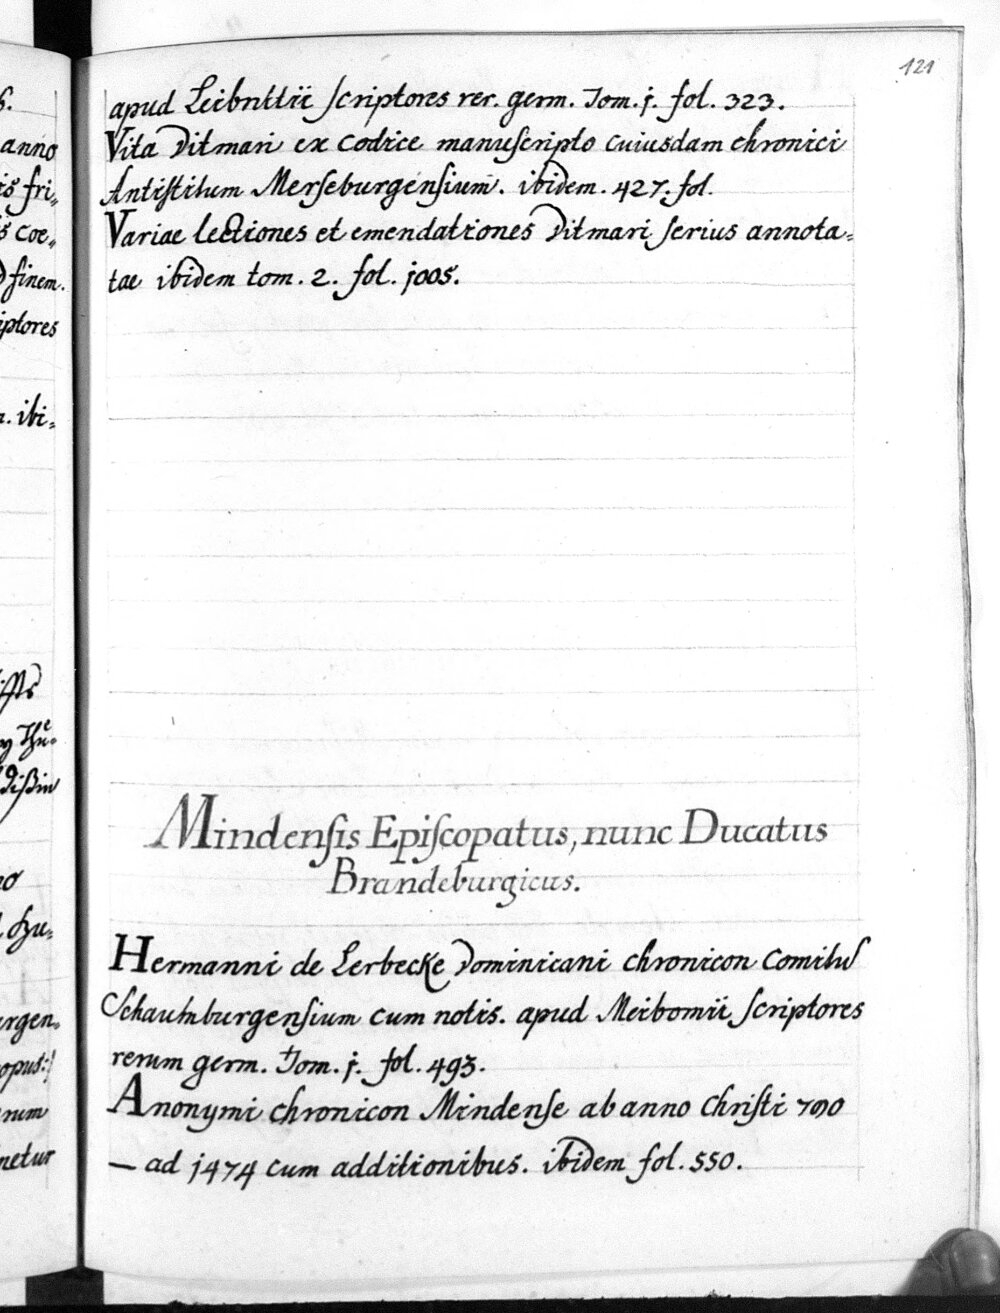 121
apud Leibnitii scriptores rer. germ. Tom. j. fol. 323.
Vita Ditmari ex codice manuscripto cuiusdam chronici
Antistitum Merseburgensium. ibidem. 427. fol.
Variae lectiones et emendationes Ditmari serius annota-
tae ibidem tom. 2. fol. j005.
Mindensis Episcopatus, nunc Ducatus
Brandeburgicus.
Hermanni de Lerbecke Dominicani chronicon Comitum
Schaumburgensium cum notis. apud Meibomii scriptores
rerum germ. Tom. j. fol. 493.
Anonymi chronicon Mindense ab anno Christi 790
— ad j474 cum additionibus. ibidem fol. 550.
anno
fri-
coe-
finem.
iptores
ibi-
rgen-
opus:
netur